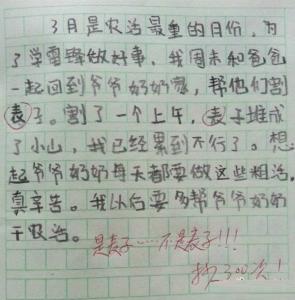 3月是农活最重的月份，为
了学雷锋做好事，我周末和爸爸
一起回到爷爷奶奶家，帮他们割
表子。割了一个上午，表子堆成
了小山，我已经累到不行了。想
起爷爷奶奶每天都要做这些粗活，
真辛苦。我以后要多帮爷爷奶奶
干农活。
是麦子……不是表子!!!
抄300次！